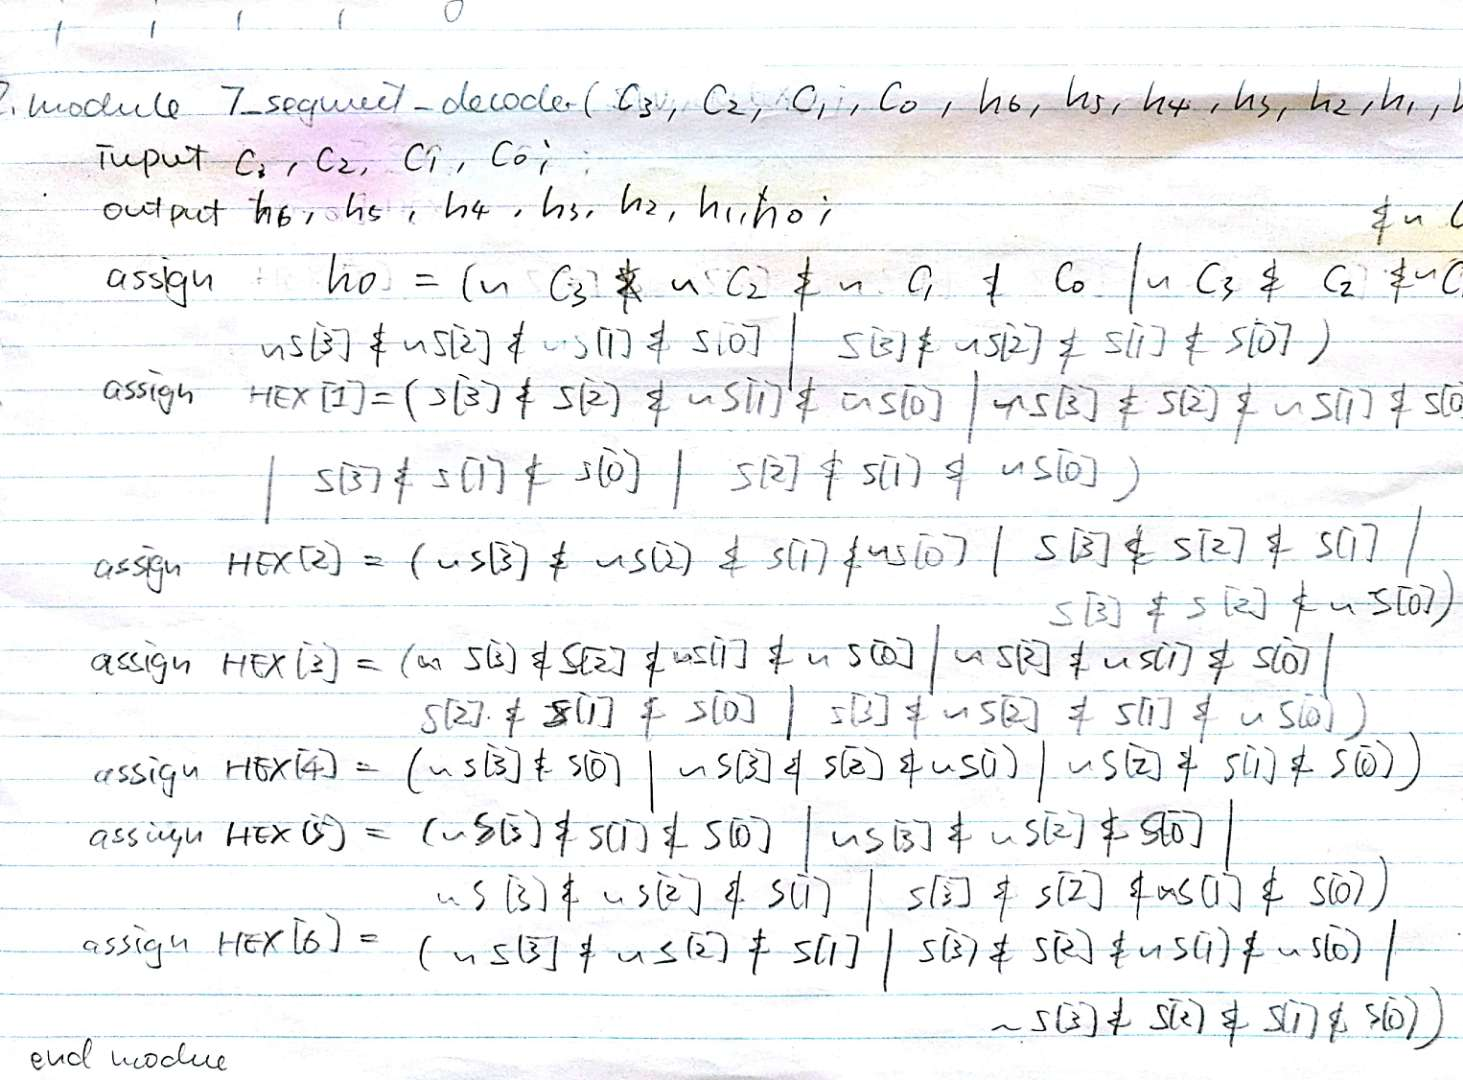 2. module 7_segment_decoder ( C3, C2, C1, C0, h6, h5, h4, h3, h2, h1,
input C3, C2, C1, C0;
output h6, h5, h4, h3, h2, h1, h0;
& ~
assign h0 = (~ C3 & ~ C2 & ~ C1 & C0 | ~ C3 & C2 & ~ C
~S[3] & ~S[2] & ~S[1] & S[0] | S[3] & ~S[2] & S[1] & S[0])
assign HEX[1] = (S[3] & S[2] & ~S[1] & ~S[0] | ~S[3] & S[2] & ~S[1] & S[0
| S[3] & S[1] & S[0] | S[2] & S[1] & ~S[0])
assign HEX[2] = (~S[3] & ~S[2] & S[1] & ~S[0] | S[3] & S[2] & S[1] |
S[3] & S[2] & ~S[0])
assign HEX[3] = (~S[3] & S[2] & ~S[1] & ~S[0] | ~S[2] & ~S[1] & S[0] |
S[2] & S[1] & S[0] | S[3] & ~S[2] & S[1] & ~S[0])
assign HEX[4] = (~S[3] & S[0] | ~S[3] & S[2] & ~S[1] | ~S[2] & S[1] & S[0])
assign HEX[5] = (~S[3] & S[1] & S[0] | ~S[3] & ~S[2] & S[0] |
~S[3] & ~S[2] & S[1] | S[3] & S[2] & ~S[1] & S[0])
assign HEX[6] = (~S[3] & ~S[2] & S[1] | S[3] & S[2] & ~S[1] & ~S[0] |
~S[3] & S[2] & S[1] & S[0])
end modue